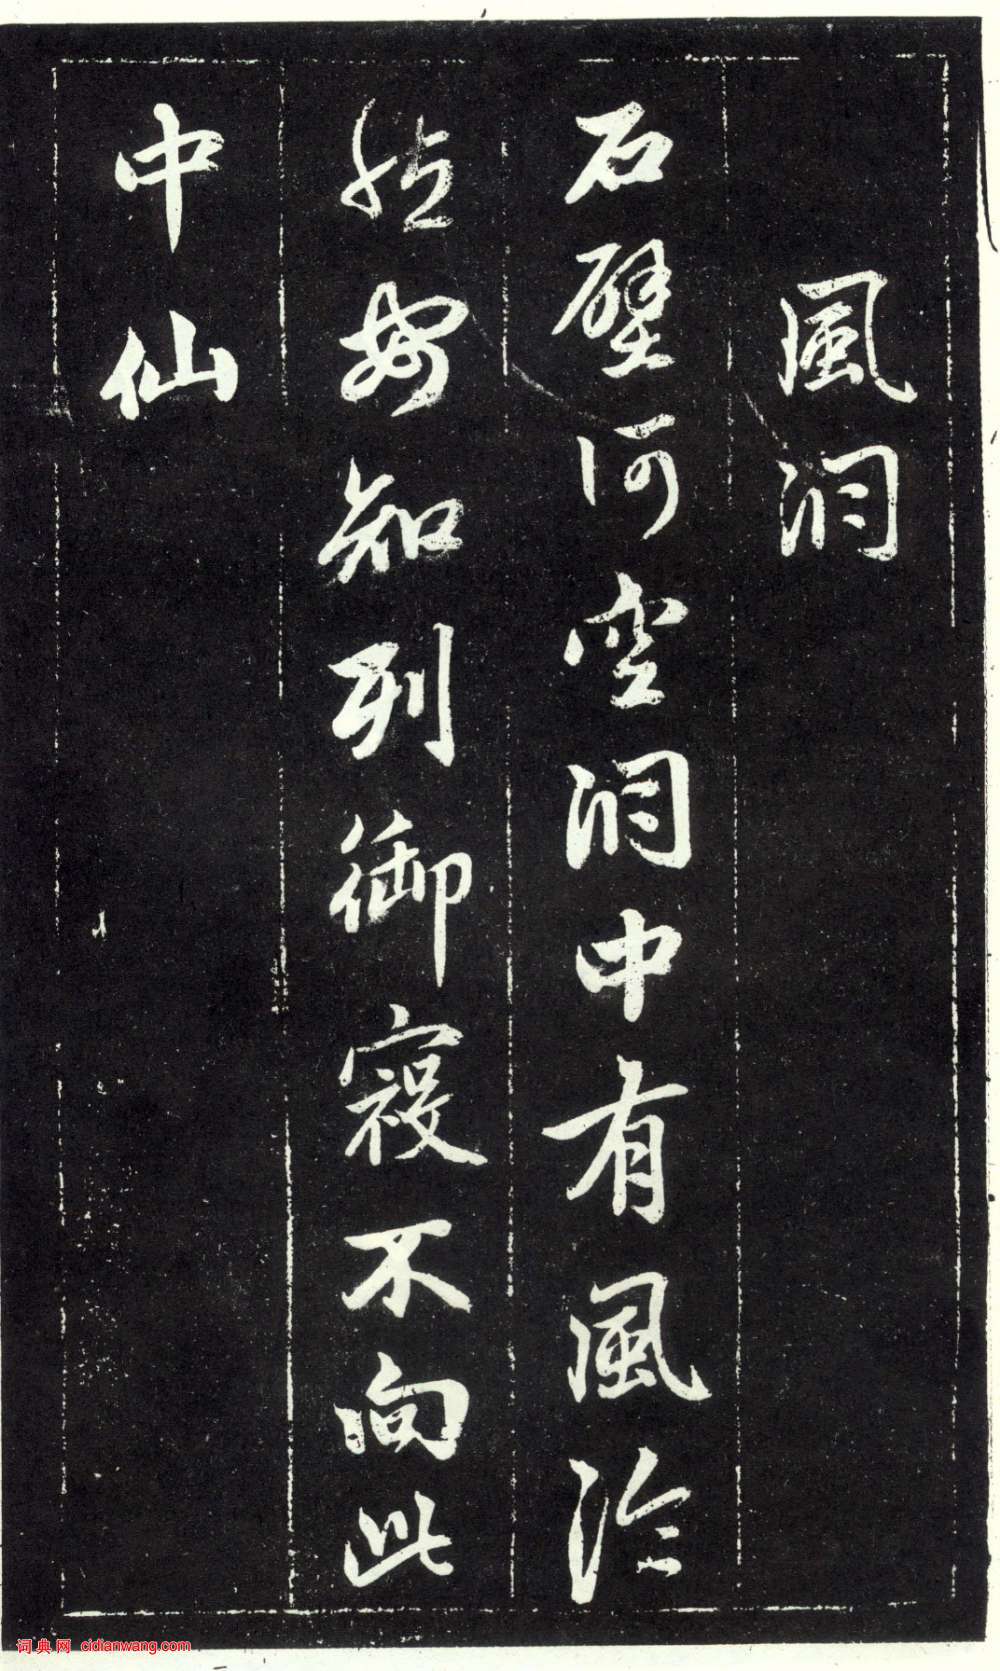 風洞
石壁何空洞中有風泠
然安知列御寇不向此
中仙
词典网 cidianwang.com